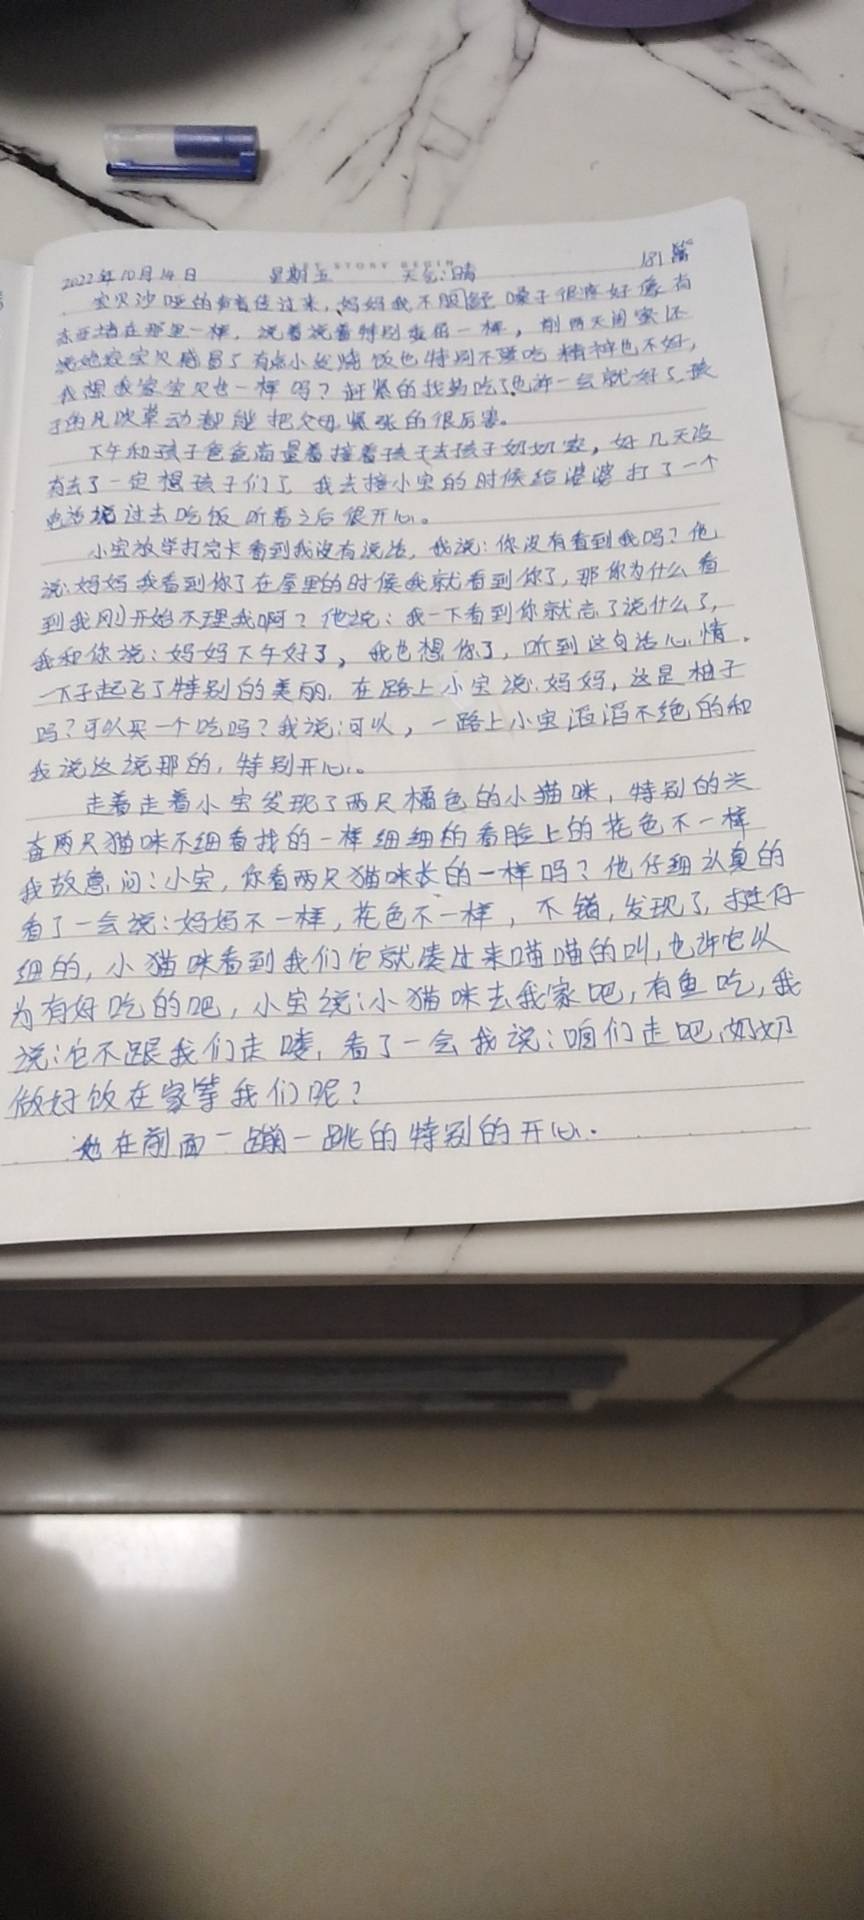 2022年10月14日 星期五 天气:晴 181篇
宝贝沙哑的声音传过来,妈妈我不服舒 嗓子很疼好像有
东西堵在那里一样,说着说着特别委屈一样,前两天闺蜜还
说她家宝贝感冒了有点小发烧 饭也特别不爱吃 精神也不好,
我想我家宝贝也一样吗?赶紧的找药吃了也许一会就好了、孩
子的风吹草动都能把父母紧张的很厉害。
下午和孩子爸爸商量着接着孩子去孩子奶奶家,好几天没
有去了一定想孩子们了 我去接小宝的时候给婆婆打了一个
电话说过去吃饭 听着之后很开心。
小宝放学打完卡看到我没有说话,我说:你没有看到我吗?他
说:妈妈我看到你了在屋里的时候我就看到你了,那你为什么看
到我刚开始不理我啊?他说:我一下看到你就忘了说什么了,
我和你说:妈妈下午好了,我也想你了,听到这句话心情
一下子起飞了特别的美丽.在路上小宝说:妈妈,这是柚子
吗?可以买一个吃吗?我说:可以,一路上小宝滔滔不绝的和
我说这说那的,特别开心。
走着走着小宝发现了两只橘色的小猫咪,特别的兴
奋两只猫咪不细看找的一样细细的看脸上的花色不一样
我故意问:小宝,你看两只猫咪长的一样吗?他仔细认真的
看了一会说:妈妈不一样,花色不一样,不错,发现了,挺仔
细的,小猫咪看到我们它就凑过来喵喵的叫,也许它以
为有好吃的吧,小宝说:小猫咪去我家吧,有鱼吃,我
说:它不跟我们走喽,看了一会我说:咱们走吧,奶奶
做好饭在家等我们呢?
他在前面一蹦一跳的特别的开心.